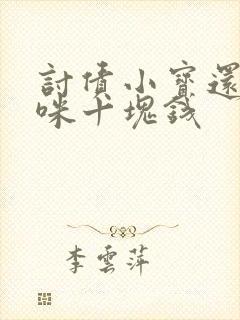 討債小寶還
咪十塊錢
李雲萍